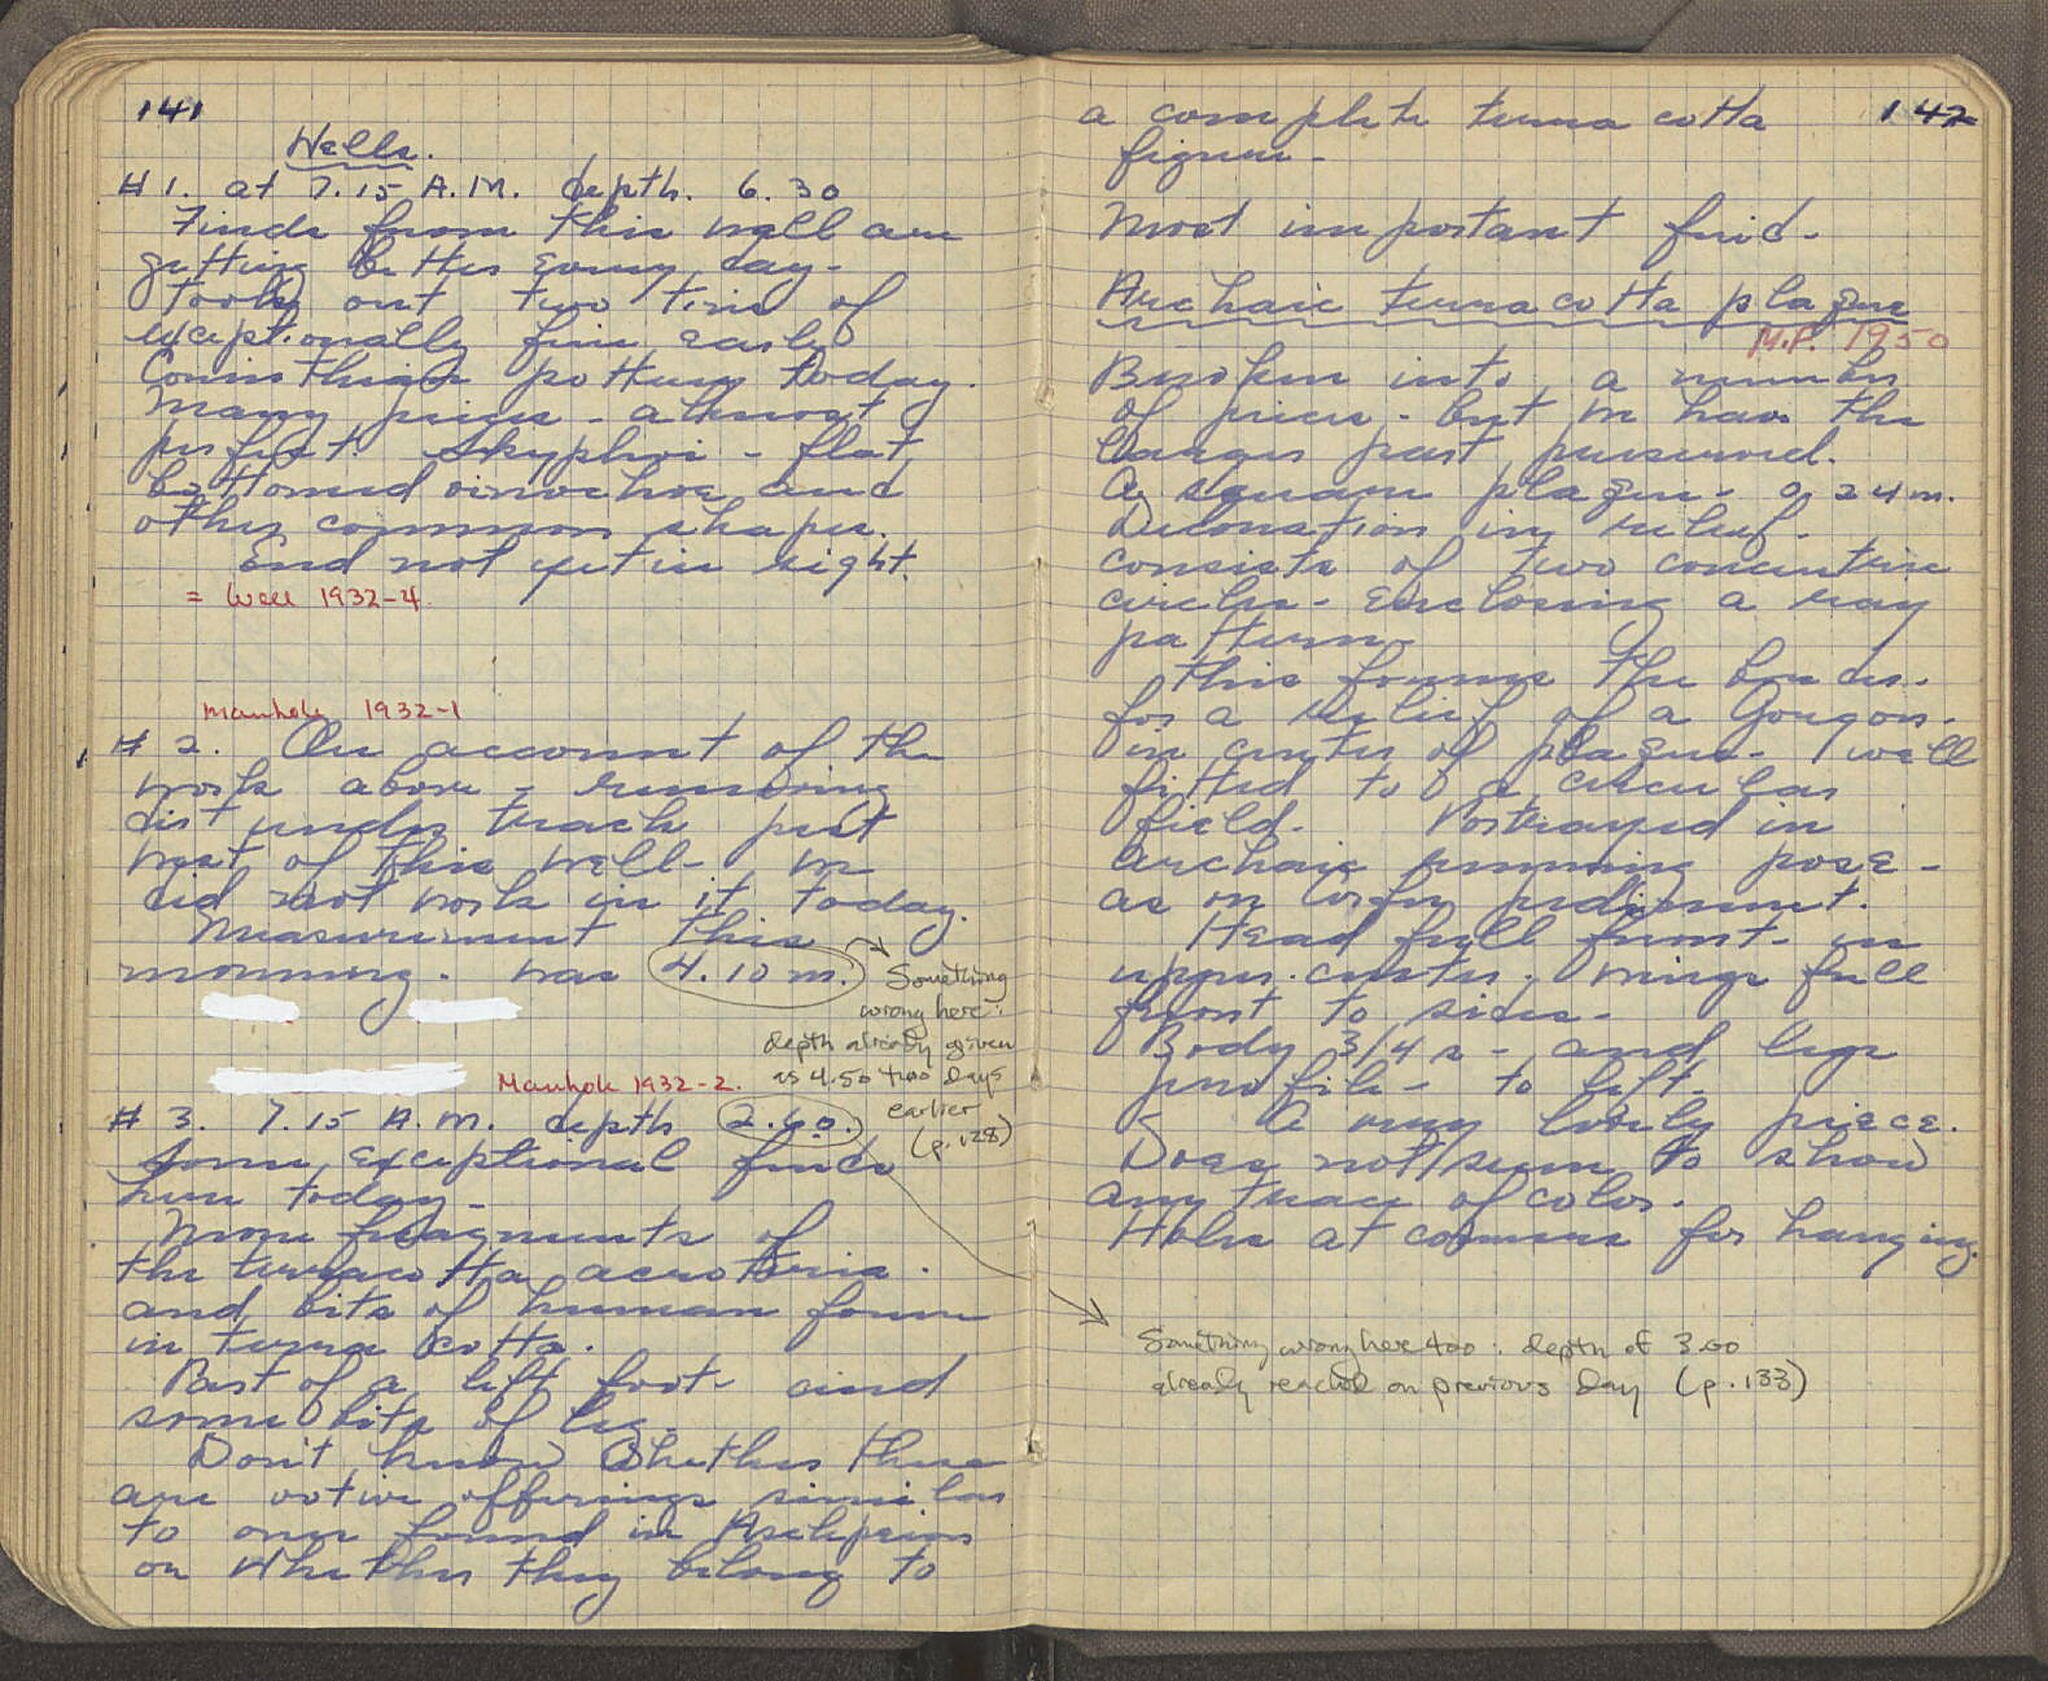 141
Wells.
# 1. at 7.15 A.M. depth. 6.30
Finds from this well are
getting better every day-
Took out two tins of
exceptionally fine early
Corinthian pottery today.
Many pieces - almost
perfect. Skyphoi - flat
bottomed oinochoe and
other common shapes.
End not yet in sight.
= Well 1932-4.
Manhole 1932-1
# 2. On account of the
work above - removing
dirt under track just
west of this well- we
did not work in it today.
Measurement this
morning. was 4.10 m.
Something
wrong here:
depth already given
as 4.50 two days
earlier
(p. 128)
Manhole 1932-2.
# 3. 7.15 A.M. depth 2.60.
Some exceptional finds
here today-
More fragments of
the terracotta acroteria.
and bits of human form
in terra cotta.
Part of a left foot- and
some bits of leg-
Don't know whether these
are votive offerings similar
to ones found in Asclepeion
or whether they belong to
142
a complete terra cotta
figure-
Most important find-
Archaic terra cotta plaque
M.F. 1950
Broken into a number
of pieces - but we have the
larger part preserved.
A square plaque- 0.24 m.
Decoration in relief-
consists of two concentric
circles- enclosing a ray
pattern-
This forms the border-
for a relief of a Gorgon-
in center of plaque- well
fitted to a circular
field. Portrayed in
archaic running pose-
as on Corfu pediment.
Head full front- in
upper center; wings full
front to sides-
Body 3/4s- and legs
profile- to left-
A very lovely piece.
Does not seem to show
any trace of color.
Holes at corners for hanging.
Something wrong here too: depth of 3.00
already reached on previous day (p. 133)